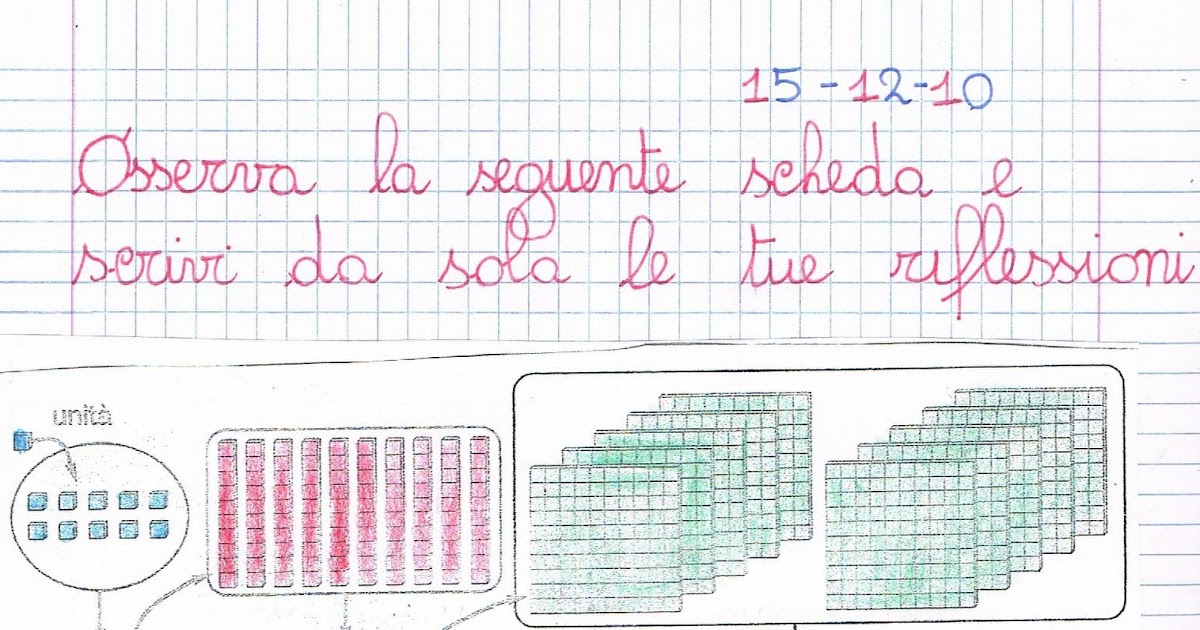 15-12-10
Osserva la seguente scheda e
scrivi da sola le tue riflessioni
unità